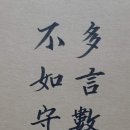 多言數
不如守